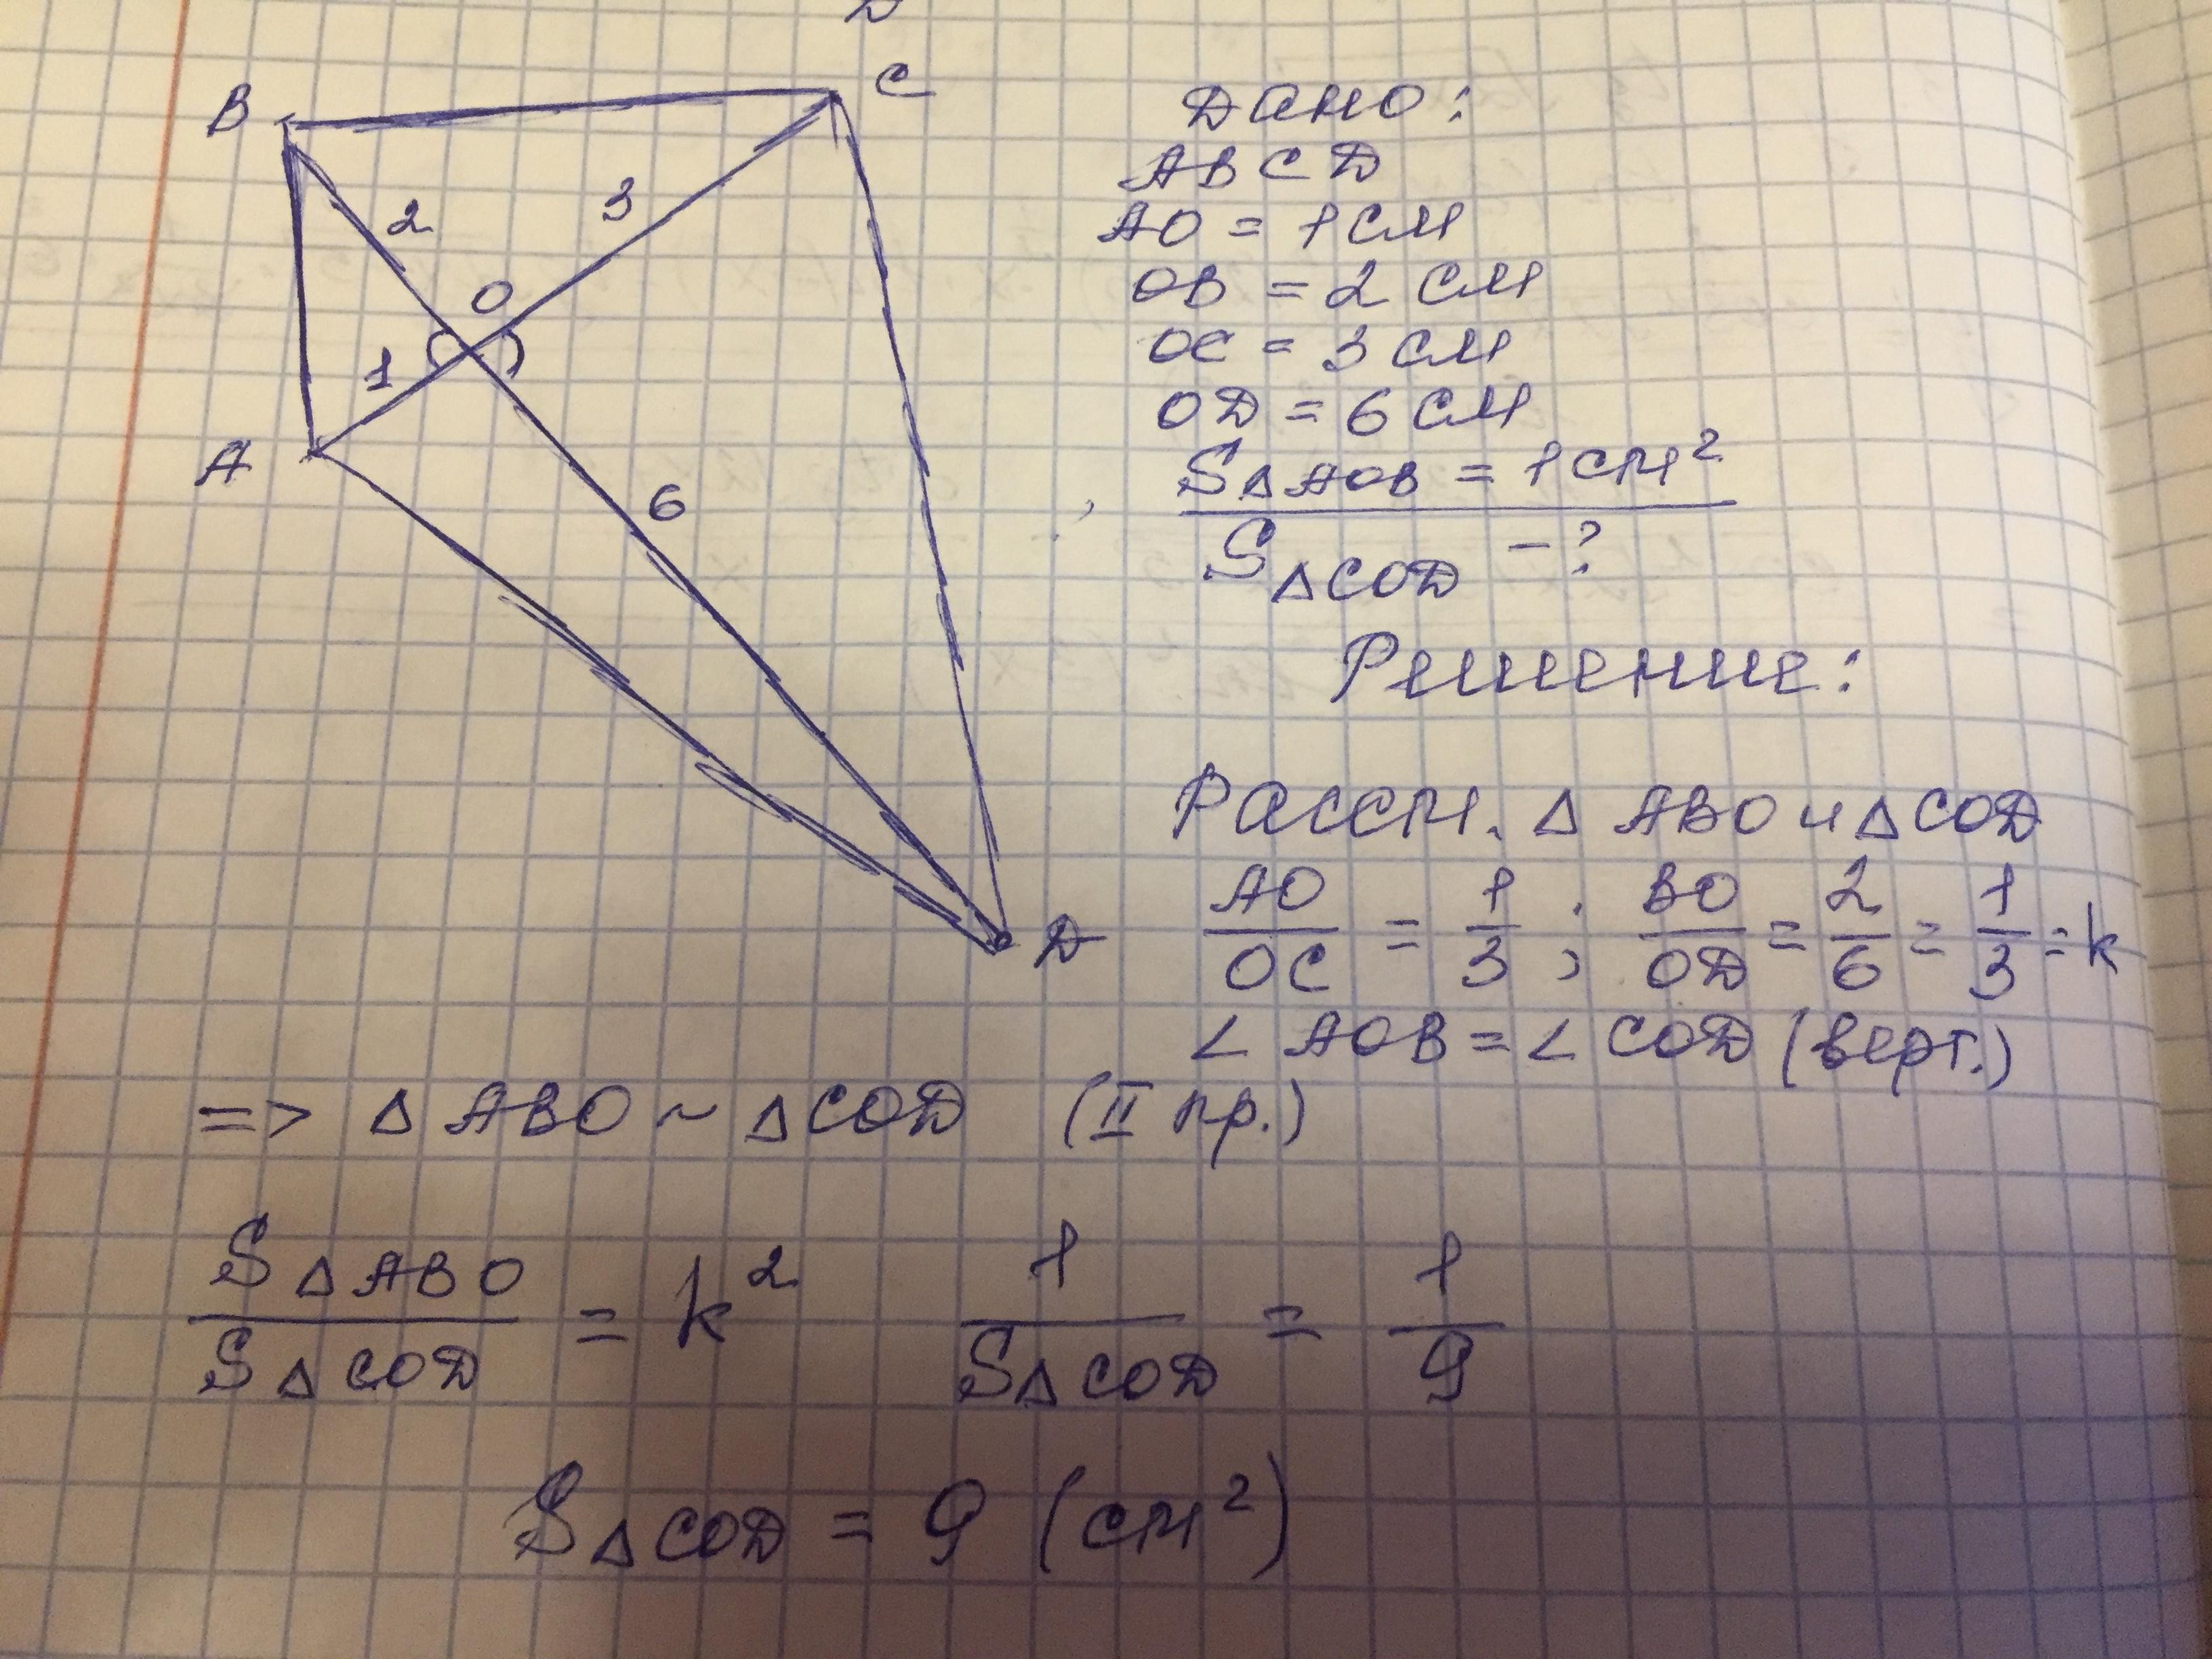 B
C
2
3
O
1
A
6
D
Дано:
ABCD
AO = 1 см
OB = 2 см
OC = 3 см
OD = 6 см
S△AOB = 1 см²
S△COD - ?
Решение:
Рассм. △ ABO и △ COD
AO/OC = 1/3 ; BO/OD = 2/6 = 1/3 = k
∠ AOB = ∠ COD (верт.)
=> △ ABO ~ △ COD (II пр.)
S△ABO/S△COD = k² 1/S△COD = 1/9
S△COD = 9 (см²)